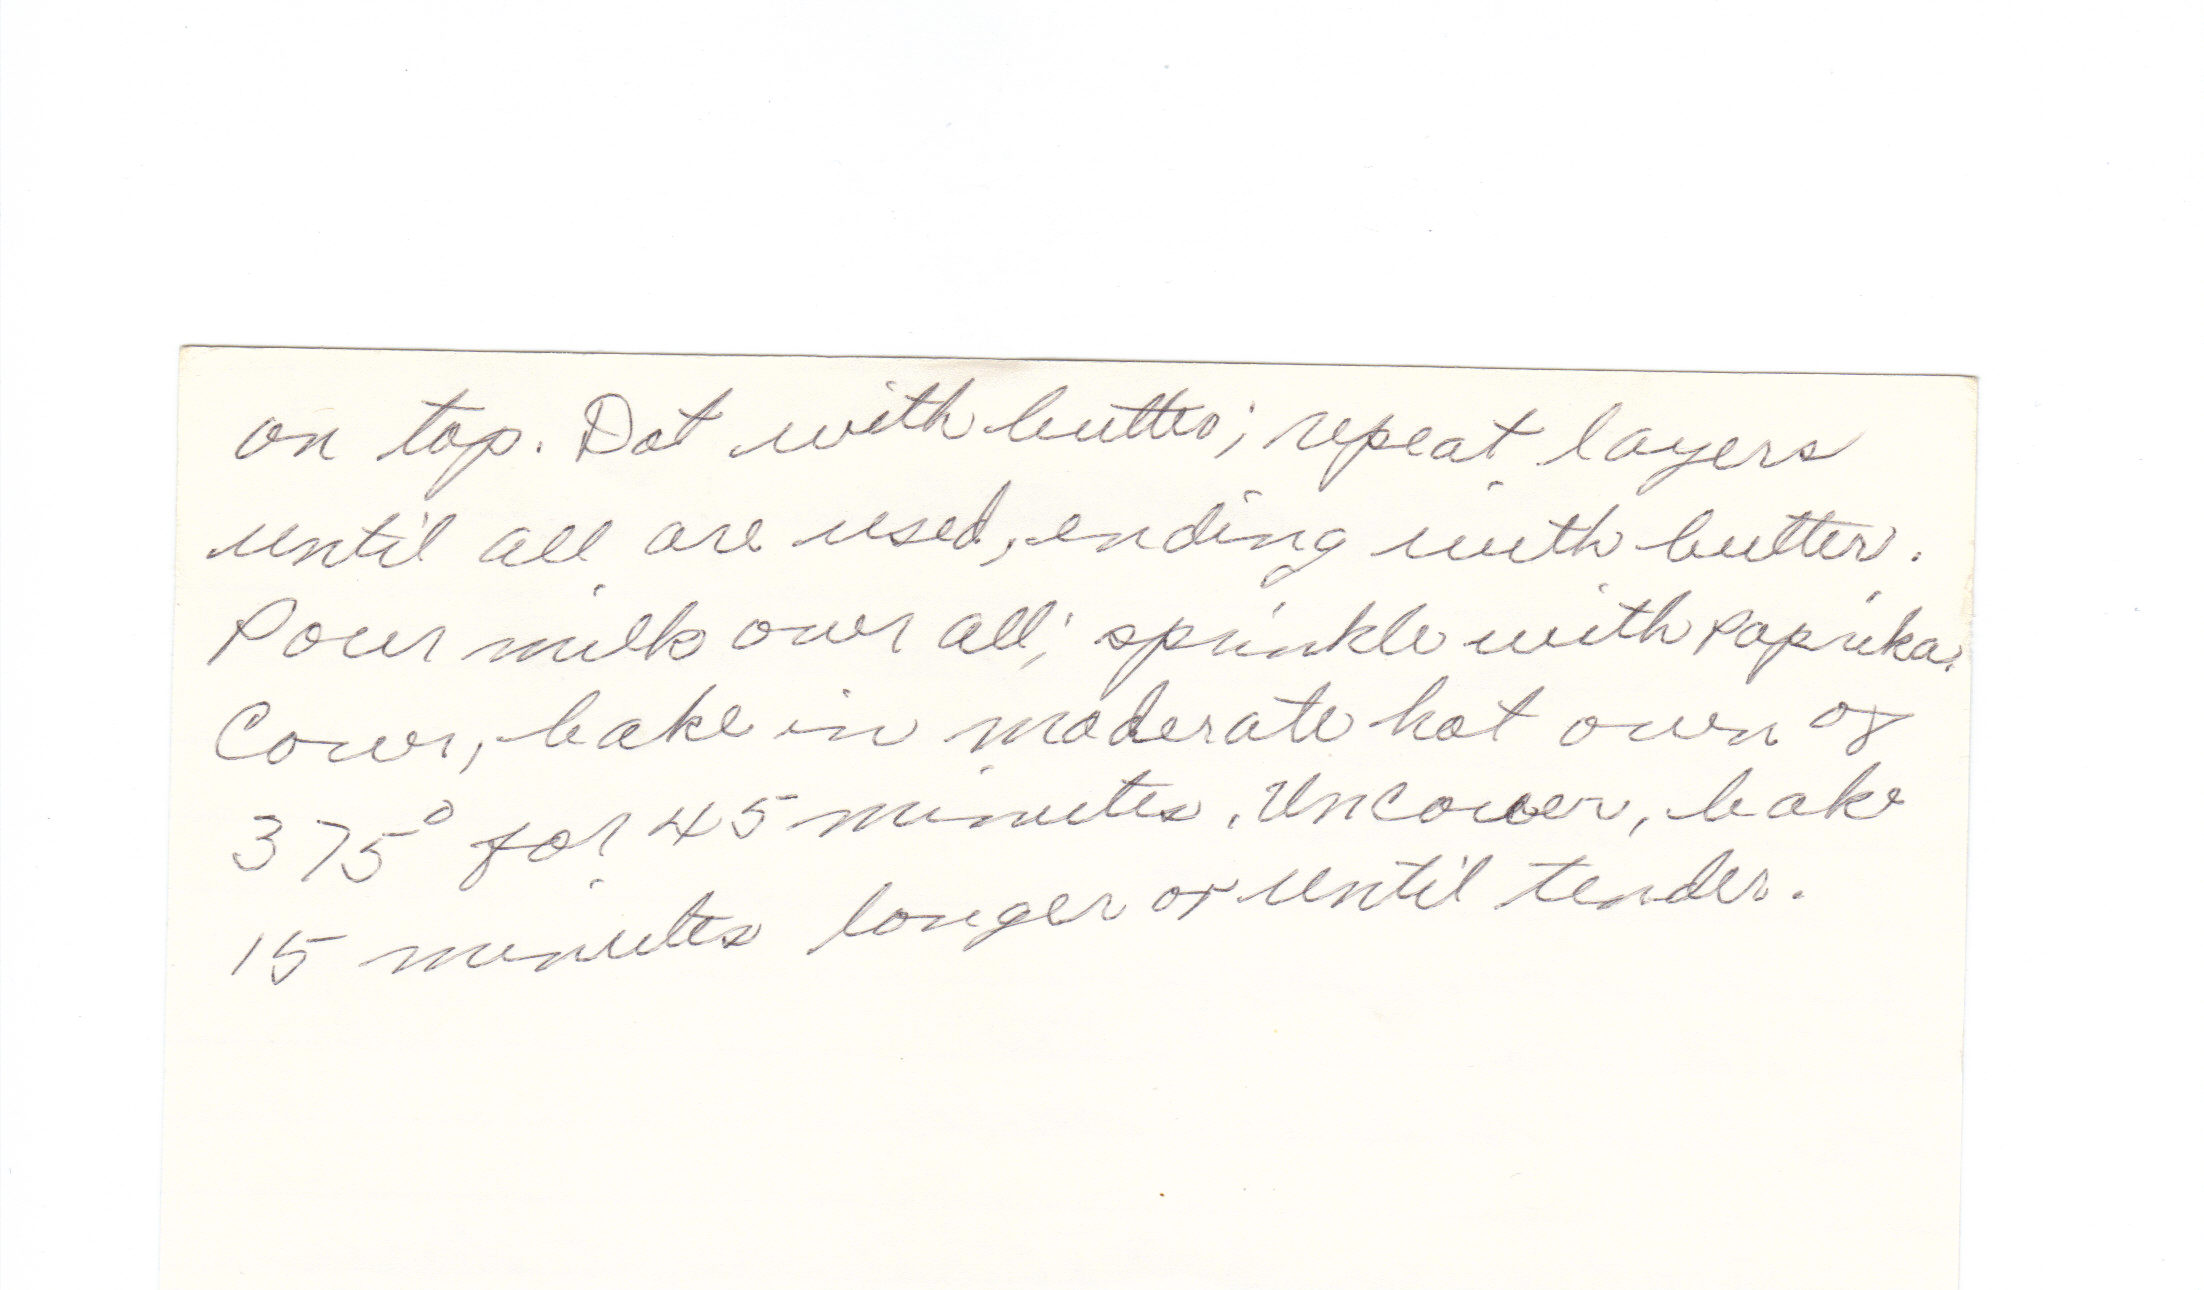 on top. Dot with butter; repeat layers
until all are used, ending with butter.
Pour milk over all; sprinkle with Paprika.
Cover, bake in moderate hot oven of
375° for 45 minutes. Uncover, bake
15 minutes longer or until tender.